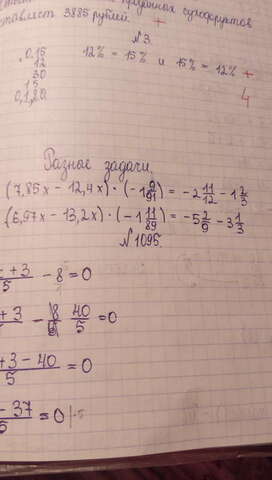 проданных сухофруктов
3885 рублей. +
№3.
0,15
12
30
15
0,1,80
12% = 15% и 15% = 12% +
4
Разные задачи.
(7,85x - 12,4x) · (-1 9/91) = -2 11/12 - 1 2/3
(6,97x - 13,2x) · (-1 11/89) = -5 2/9 - 3 1/3
№1095.
+3/5 - 8 = 0
+3/5 - 8 40/5 = 0
+3-40/5 = 0
-37/5 = 0 | ·5